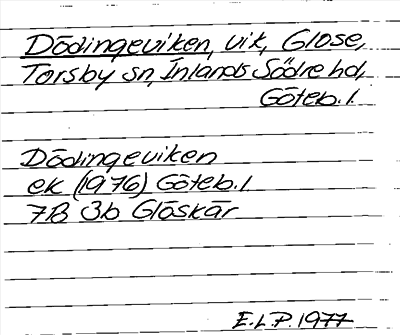 Dödingeviken, vik, Glose,
Torsby sn, Inlands Södre hd,
Göteb. l.
Dödingeviken
ek (1976) Göteb. l
7B 3b Glöskär
E.L.P. 1977